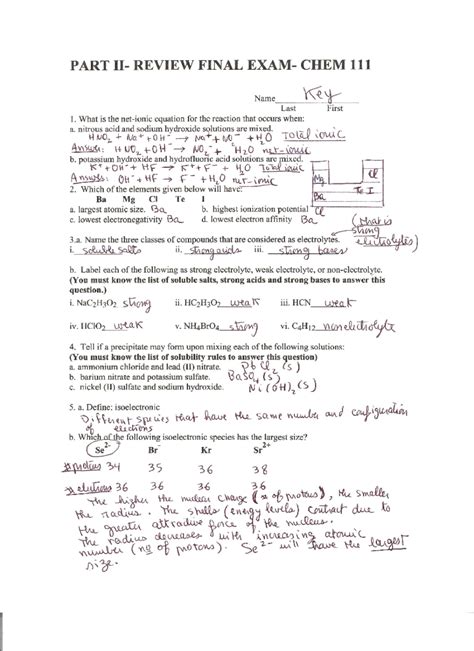 PART II- REVIEW FINAL EXAM- CHEM 111
Name Key
Last First
1. What is the net-ionic equation for the reaction that occurs when:
a. nitrous acid and sodium hydroxide solutions are mixed.
HNO₂ + Na⁺ + OH⁻ → Na⁺ + NO₂⁻ + H₂O Total ionic
Answer: HNO₂ + OH⁻ → NO₂⁻ + H₂O net-ionic
b. potassium hydroxide and hydrofluoric acid solutions are mixed.
K⁺ + OH⁻ + HF → K⁺ + F⁻ + H₂O Total ionic
Answer: OH⁻ + HF → F⁻ + H₂O net-ionic
Mg Cl
Te I
Ba
2. Which of the elements given below will have:
Ba Mg Cl Te I
a. largest atomic size. Ba b. highest ionization potential Cl
c. lowest electronegativity Ba d. lowest electron affinity Ba
(What is
strong
electrolytes)
3.a. Name the three classes of compounds that are considered as electrolytes.
i. soluble salts ii. strong acids iii. strong bases
b. Label each of the following as strong electrolyte, weak electrolyte, or non-electrolyte.
(You must know the list of soluble salts, strong acids and strong bases to answer this
question.)
i. NaC₂H₃O₂ strong ii. HC₂H₃O₂ weak iii. HCN weak
iv. HClO₂ weak v. NH₄BrO₄ strong vi. C₆H₁₂ nonelectrolyte
4. Tell if a precipitate may form upon mixing each of the following solutions:
(You must know the list of solubility rules to answer this question)
a. ammonium chloride and lead (II) nitrate. PbCl₂(s)
b. barium nitrate and potassium sulfate. BaSO₄(s)
c. nickel (II) sulfate and sodium hydroxide. Ni(OH)₂(s)
5. a. Define: isoelectronic
Different species that have the same number and configuration
of electrons
b. Which of the following isoelectronic species has the largest size?
Se²⁻ Br⁻ Kr Sr²⁺
# protons 34 35 36 38
# electrons 36 36 36 36
The higher the nuclear charge (# of protons), the smaller
the radius. The shells (energy levels) contract due to
the greater attractive force of the nucleus.
The radius decreases with increasing atomic
number (no of protons). Se²⁻ will have the largest
size.